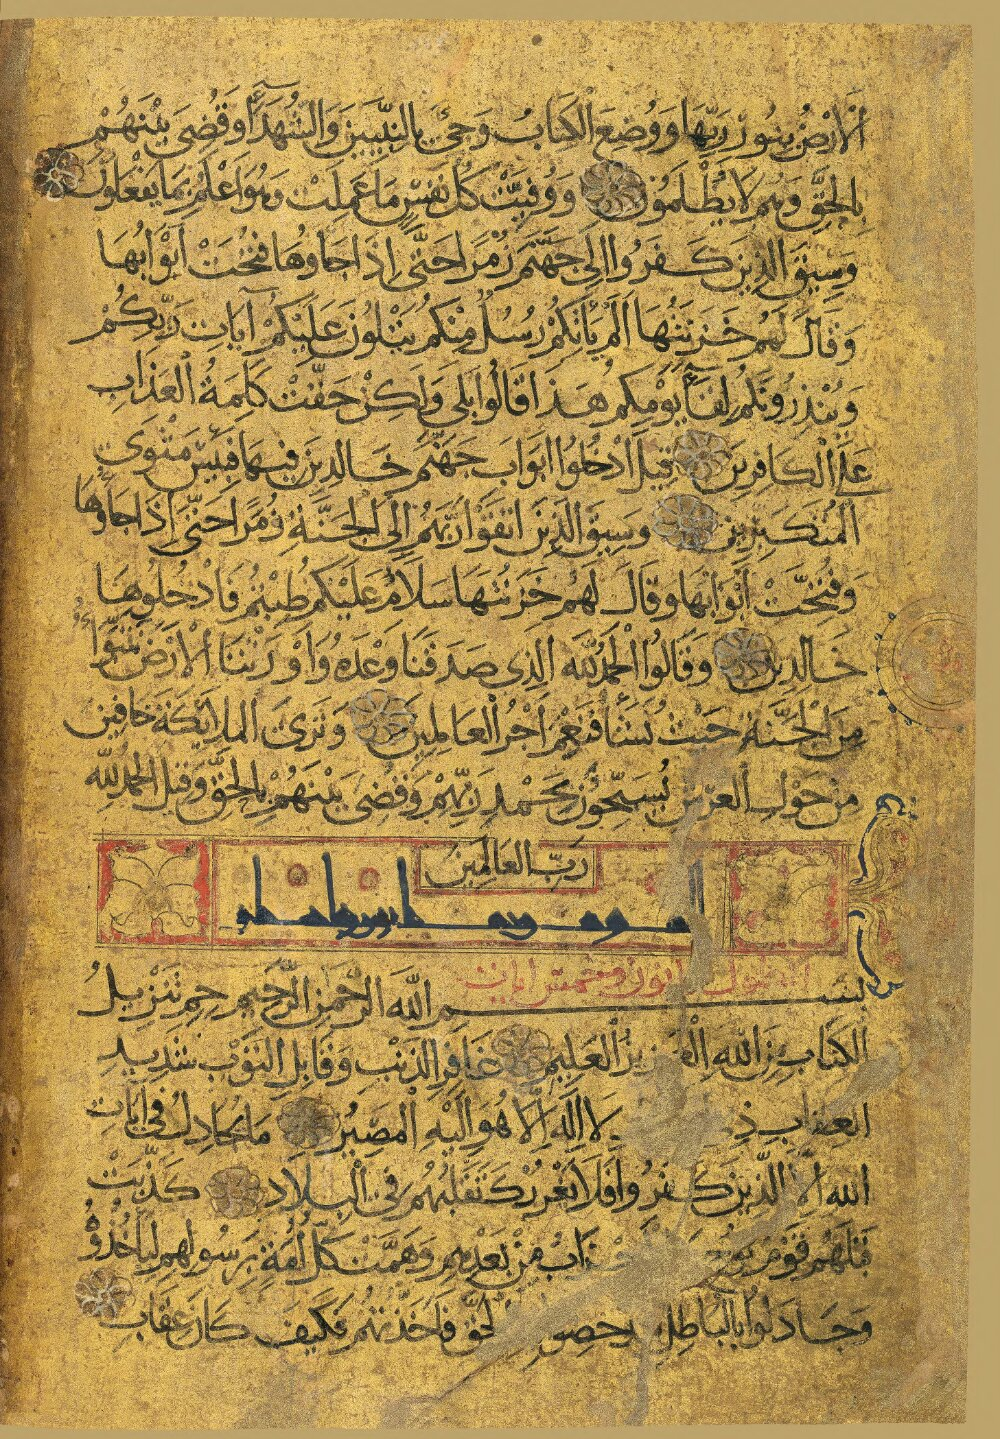 ٱلْأَرْضُ بِنُورِ رَبِّهَا وَوُضِعَ الْكِتَابُ وَجِیءَ بِالنَّبِيِّينَ وَالشُّهَدَآءِ وَقُضِيَ بَيْنَهُمْ
بِالْحَقِّ وَهُمْ لَا يُظْلَمُونَ وَوُفِّيَتْ كُلُّ نَفْسٍ مَا عَمِلَتْ وَهُوَ أَعْلَمُ بِمَا يَفْعَلُونَ
وَسِيقَ الَّذِينَ كَفَرُوا إِلَى جَهَنَّمَ زُمَرًا حَتَّى إِذَا جَاؤُهَا فُتِحَتْ أَبْوَابُهَا
وَقَالَ لَهُمْ خَزَنَتُهَا أَلَمْ يَأْتِكُمْ رُسُلٌ مِنْكُمْ يَتْلُونَ عَلَيْكُمْ آيَاتِ رَبِّكُمْ
وَيُنْذِرُونَكُمْ لِقَآءَ يَوْمِكُمْ هَذَا قَالُوا بَلَى وَلَكِنْ حَقَّتْ كَلِمَةُ الْعَذَابِ
عَلَى الْكَافِرِينَ قِيلَ ادْخُلُوا أَبْوَابَ جَهَنَّمَ خَالِدِينَ فِيهَا فَبِئْسَ مَثْوَى
الْمُتَكَبِّرِينَ وَسِيقَ الَّذِينَ اتَّقَوْا رَبَّهُمْ إِلَى الْجَنَّةِ زُمَرًا حَتَّى إِذَا جَاؤُهَا
وَفُتِحَتْ أَبْوَابُهَا وَقَالَ لَهُمْ خَزَنَتُهَا سَلَامٌ عَلَيْكُمْ طِبْتُمْ فَادْخُلُوهَا
خَالِدِينَ وَقَالُوا الْحَمْدُ لِلَّهِ الَّذِي صَدَقَنَا وَعْدَهُ وَأَوْرَثَنَا الْأَرْضَ نَتَبَوَّأُ
مِنَ الْجَنَّةِ حَيْثُ نَشَآءُ فَنِعْمَ أَجْرُ الْعَامِلِينَ وَتَرَى الْمَلَائِكَةَ حَافِّينَ
مِنْ حَوْلِ الْعَرْشِ يُسَبِّحُونَ بِحَمْدِ رَبِّهِمْ وَقُضِيَ بَيْنَهُمْ بِالْحَقِّ وَقِيلَ الْحَمْدُ لِلَّهِ
رَبِّ الْعَالَمِينَ
بِسْمِ اللهِ الرَّحْمَنِ الرَّحِيمِ حم تَنْزِيلُ
الْكِتَابِ مِنَ اللهِ الْعَزِيزِ الْعَلِيمِ غَافِرِ الذَّنْبِ وَقَابِلِ التَّوْبِ شَدِيدِ
الْعِقَابِ ذِي لَا إِلَهَ إِلَّا هُوَ إِلَيْهِ الْمَصِيرُ مَا يُجَادِلُ فِي آيَاتِ
اللهِ إِلَّا الَّذِينَ كَفَرُوا فَلَا يَغْرُرْكَ تَقَلُّبُهُمْ فِي الْبِلَادِ كَذَّبَتْ
قَبْلَهُمْ قَوْمُ نُوحٍ مِنْ بَعْدِهِمْ وَهَمَّتْ كُلُّ أُمَّةٍ بِرَسُولِهِمْ لِيَأْخُذُوهُ
وَجَادَلُوا بِالْبَاطِلِ الْحَقَّ فَأَخَذْتُهُمْ فَكَيْفَ كَانَ عِقَابِ